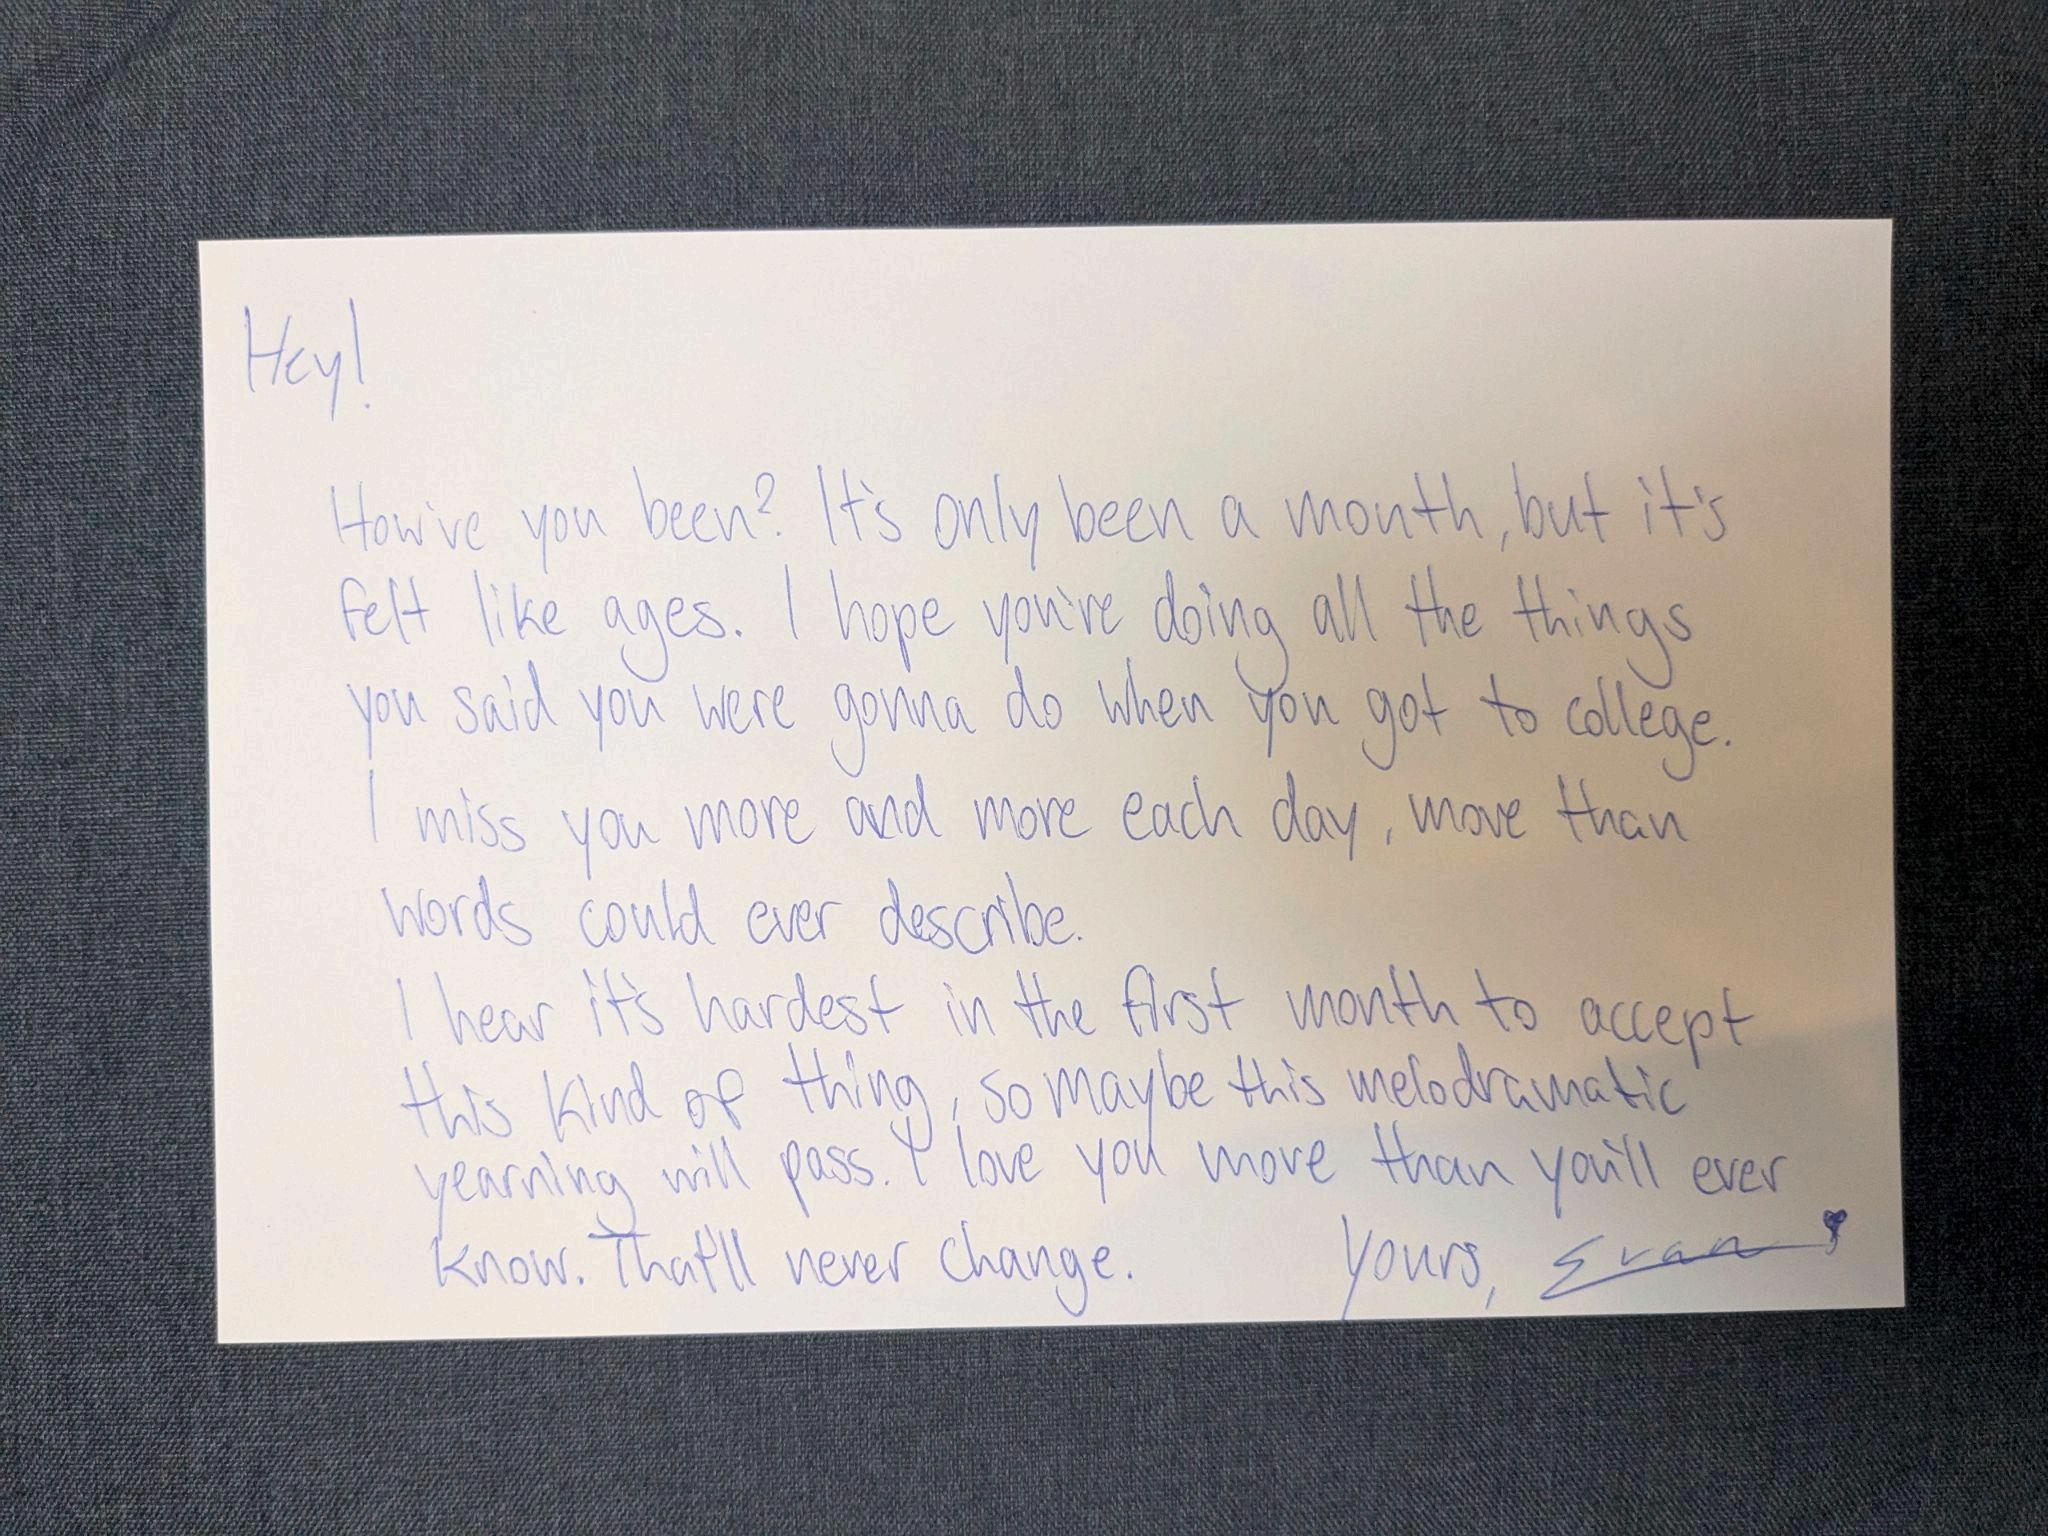 Hey!
How've you been? It's only been a month, but it's
felt like ages. I hope you're doing all the things
you said you were gonna do when you got to college.
I miss you more and more each day, more than
words could ever describe.
I hear it's hardest in the first month to accept
this kind of thing, so maybe this melodramatic
yearning will pass. I love you more than you'll ever
know. That'll never change. Yours, Evan